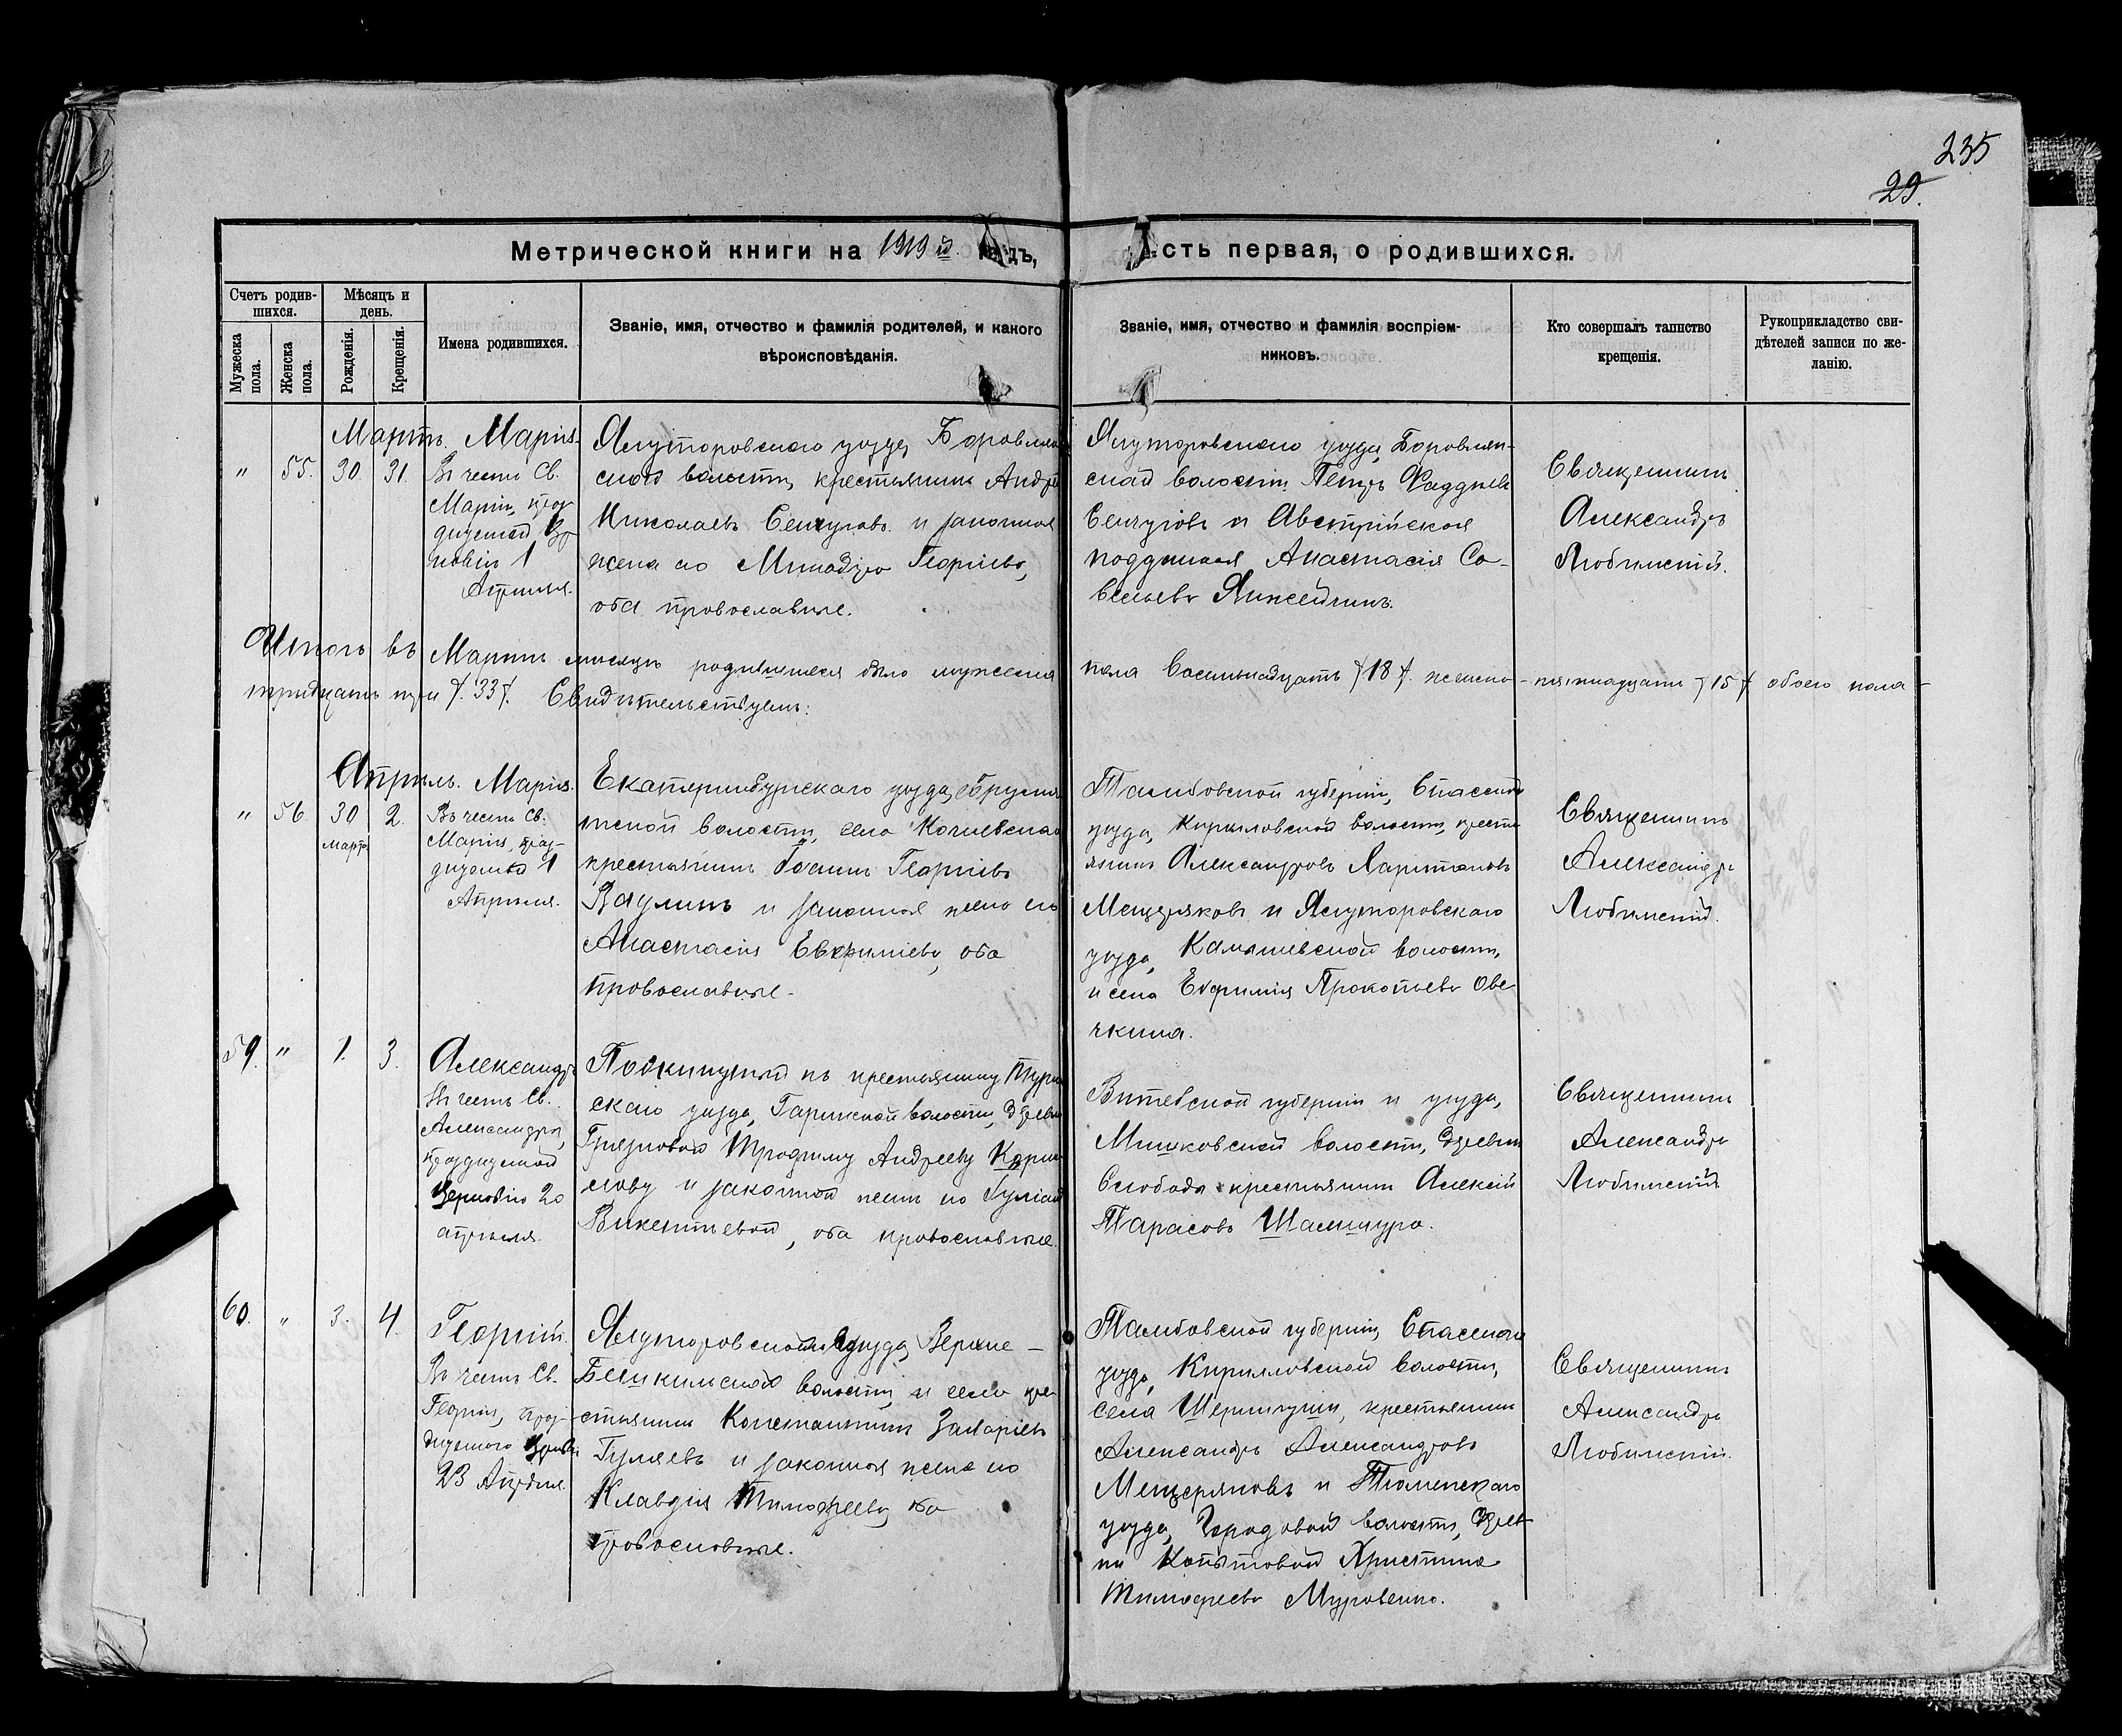 235
29.
Метрической книги на 1919 й. годъ,
сть первая, о родившихся.
Счетъ родив-
шихся.
Мѣсяцъ и
день.
Мужеска
пола.
Женска
пола.
Рожденія.
Крещенія.
Имена родившихся.
Званіе, имя, отчество и фамилія родителей, и какого
вѣроисповѣданія.
Званіе, имя, отчество и фамилія воспріем-
никовъ.
Кто совершалъ таинство
крещенія.
Рукоприкладство сви-
дѣтелей записи по же-
ланію.
Мартъ.
" 55. 30. 31.
Марія.
Въ честь Св.
Маріи, праз-
днуемой
1
Апрѣля.
Ялуторовскаго уѣзда, Боровлян
ской волости, крестьянинъ Андрей
Николаевъ Сенчуговъ и законная
жена его Минодора Георгіева,
оба православные.
Ялуторовскаго уѣзда, Боровлян-
ской волости Петръ Фаддѣевъ
Сенчуговъ и Австрійская
подданная Анастасія Са-
вельева
Священникъ
Александръ
Любимскій.
Итого въ Мартѣ мѣсяцѣ родившихся было мужеска пола восемнадцать /18/. женска - пятнадцать /15/ обоего пола -
тридцать три /33/. Свидѣтельствуемъ:
Апрѣль.
" 56. 30 2.
марта
Марія.
Въ честь Св.
Маріи, праз-
днуемой 1
Апрѣля.
Екатеринбургскаго уѣзда,
волости, села
крестьянинъ Іоаннъ Георгіевъ
Ваулинъ и законная жена его
Анастасія Евфиміева, оба
православные.
Тамбовской губерніи, Спасскаго
уѣзда, Кирилловской волости, кресть
янинъ Александръ Харитоновъ
Мещеряковъ и Ялуторовскаго
уѣзда, волости,
и села Евфимія Прокопьева Ове
чкина.
Священникъ
Александръ
Любимскій.
59. " 1. 3.
Александръ
Въ честь Св.
Александра,
празднуемой
Церковію 20
апрѣля.
Подкинутый къ крестьянину Турин
скаго уѣзда, Гаринской волости, деревни
Грязновой Трофиму Андрееву
и законной женѣ его Іуліаніи
Викентьевой, оба православные.
Витебской губерніи и уѣзда,
Мишковской волости, деревни
Слобода крестьянинъ Алексій
Тарасовъ Шаншура.
Священникъ
Александръ
Любимскій.
60. " 3. 4.
Георгій.
Въ честь Св.
Георгія, праз-
днуемого
23 Апрѣля.
Ялуторовскаго уѣзда, Верхне -
Бешкильской волости, и села кре
стьянинъ Константинъ Захаріевъ
Гуляевъ и законная жена его
Клавдія Тимофеева, оба
православные.
Тамбовской губерніи, Спасскаго
уѣзда, Кирилловской волости,
села крестьянинъ
Александръ Александровъ
Мещеряковъ и Тюменскаго
уѣзда, Городовой волости, дерев
ни Копытовой Христина
Тимофеева Муровенко.
Священникъ
Александръ
Любимскій.